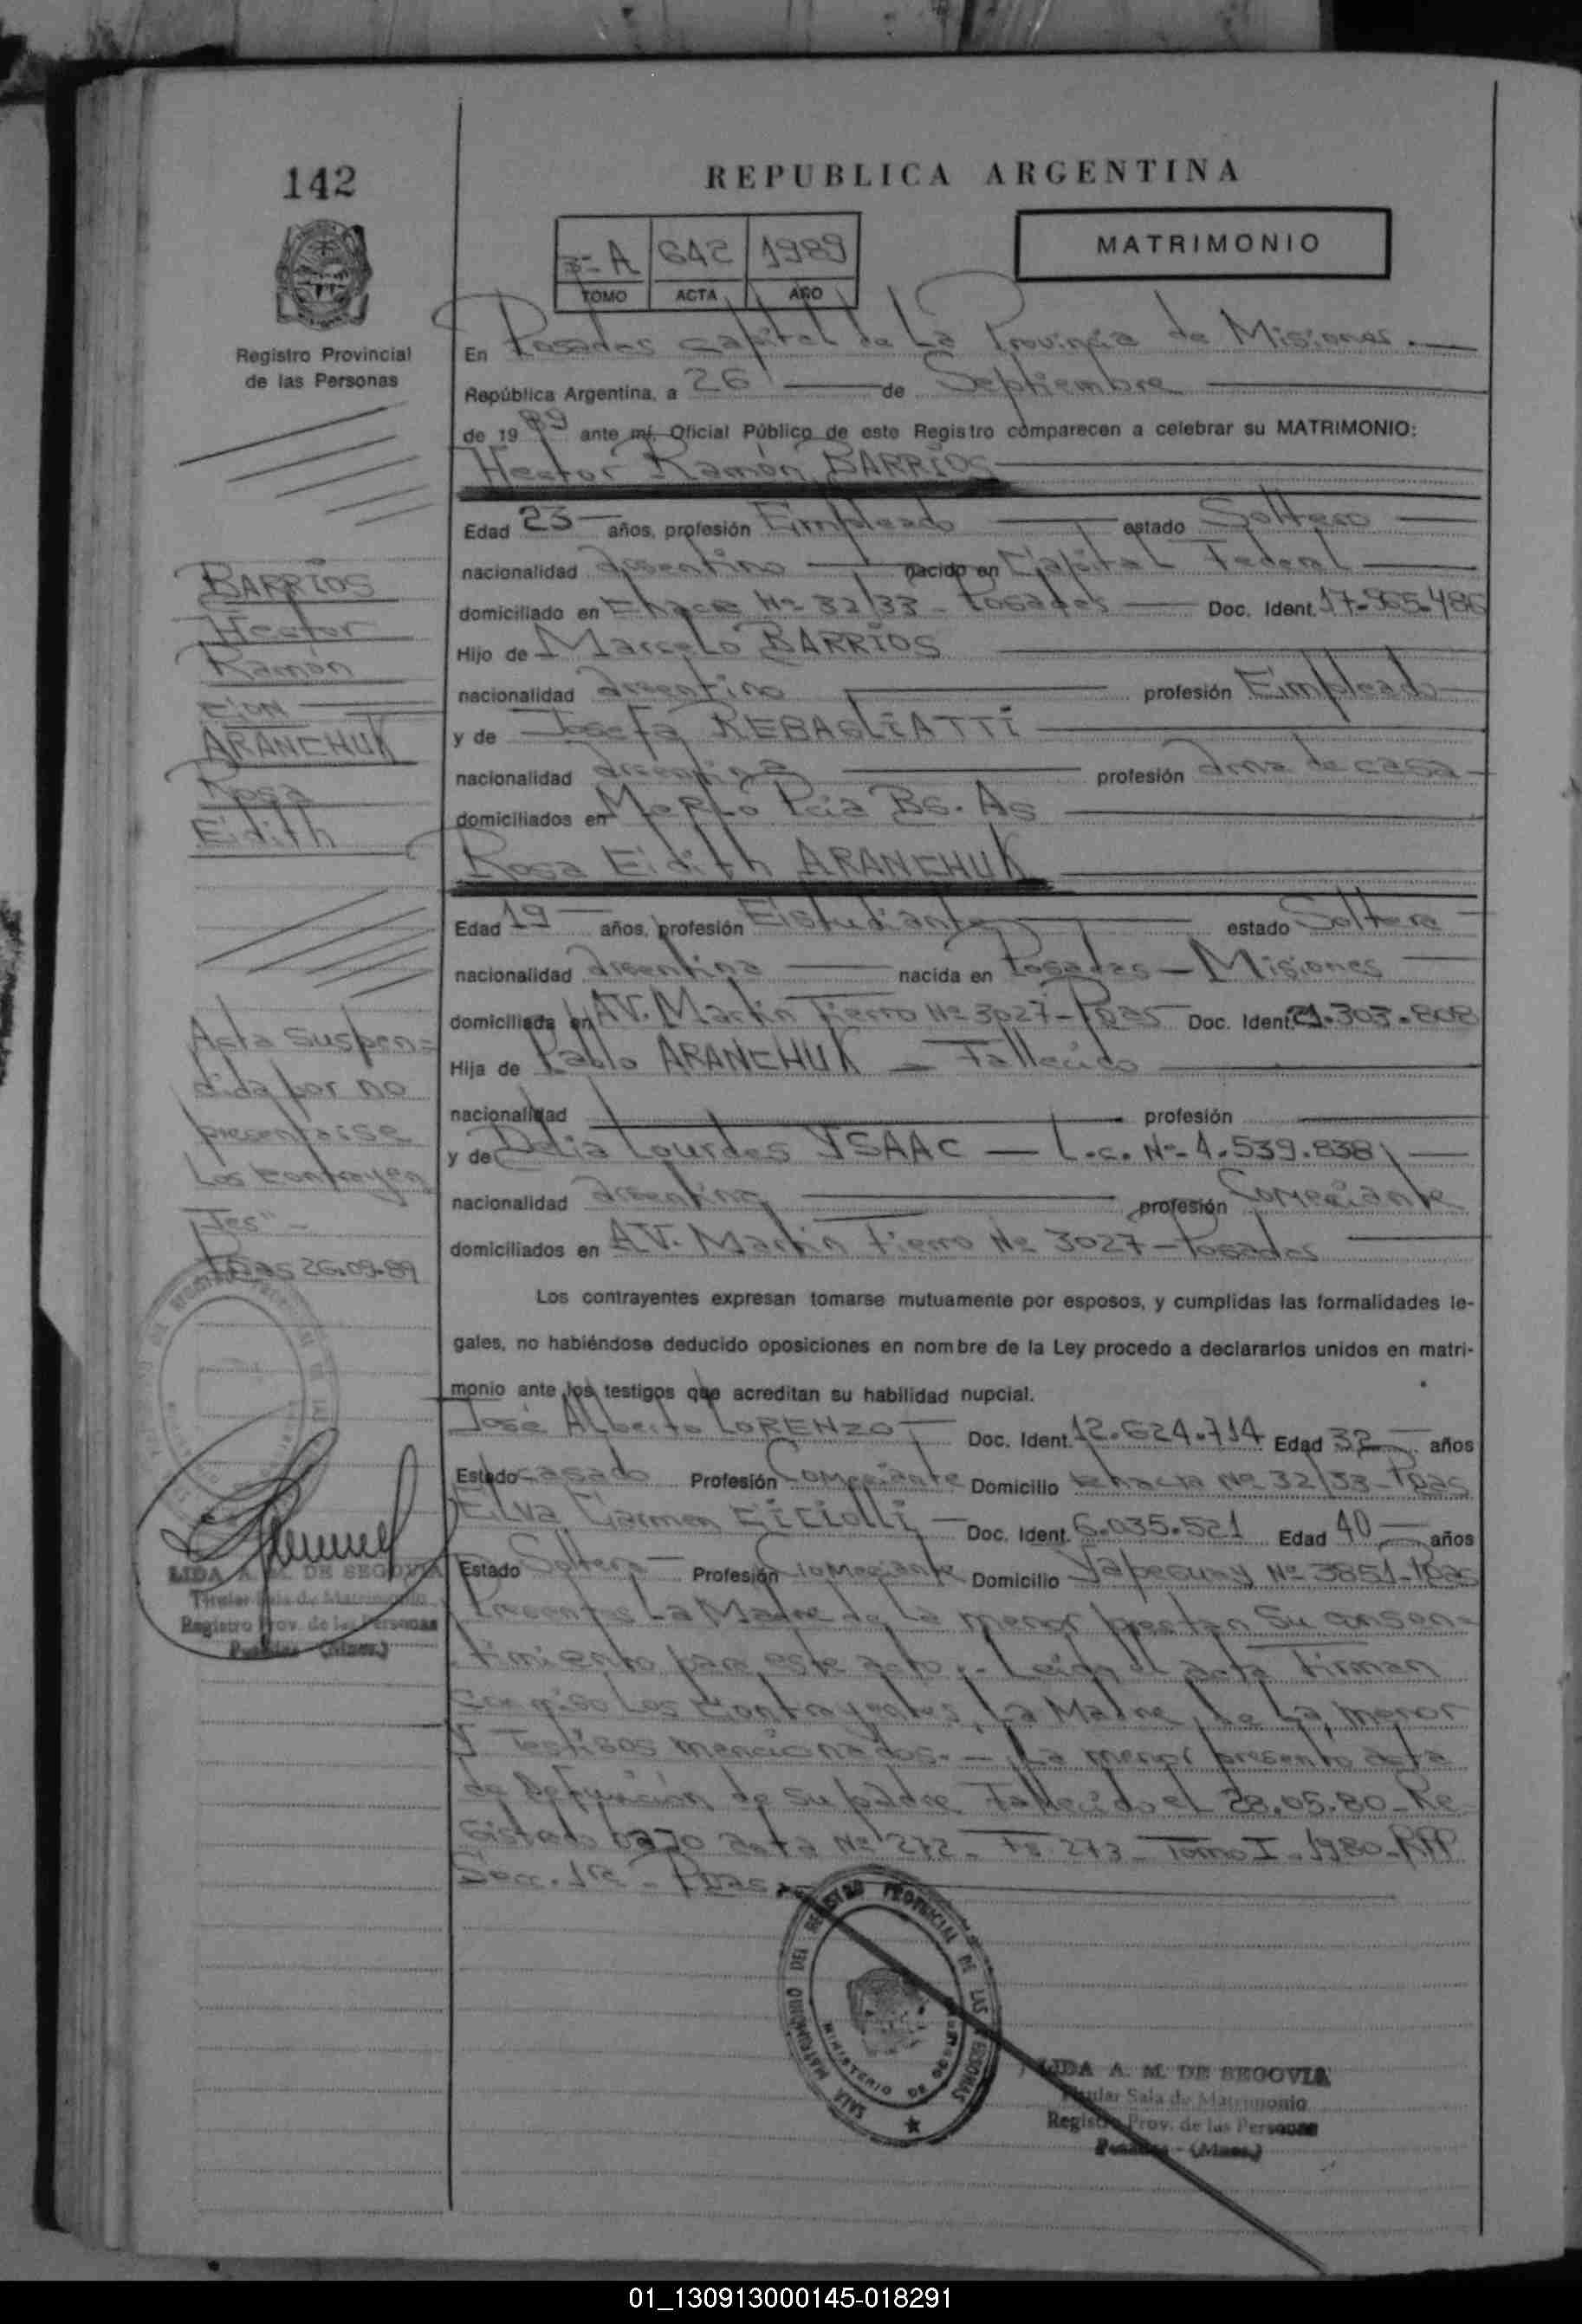 142
REPUBLICA ARGENTINA
3º A 642 1989
TOMO ACTA AÑO
MATRIMONIO
Registro Provincial
de las Personas
En Posadas Capital de La Provincia de Misiones.
República Argentina, a 26 de Septiembre
de 1989 ante mí, Oficial Público de este Registro comparecen a celebrar su MATRIMONIO:
Hector Ramón BARRIOS
Edad 23 años, profesión Empleado estado Soltero
nacionalidad argentino nacido en Capital Federal
domiciliado en Chacra Nº 32/33 - Posadas Doc. Ident. 17.965.486
Hijo de Marcelo BARRIOS
nacionalidad argentino profesión Empleado
y de Josefa REBAGLIATTI
nacionalidad argentina profesión ama de casa
domiciliados en Merlo Pcia Bs. As
Rosa Edith ARANCHUK
Edad 19 años, profesión Estudiante estado Soltera
nacionalidad argentina nacida en Posadas - Misiones
domiciliada en AV. Martin Fierro Nº 3027 - Pdas Doc. Ident. 21.303.808
Hija de Pablo ARANCHUK - Fallecido
nacionalidad profesión
y de Delia Lourdes YSAAC - L.c. Nº 4.539.838
nacionalidad argentina profesión Comerciante
domiciliados en AV. Martin Fierro Nº 3027 - Posadas
Los contrayentes expresan tomarse mutuamente por esposos, y cumplidas las formalidades le-
gales, no habiéndose deducido oposiciones en nombre de la Ley procedo a declararlos unidos en matri-
monio ante los testigos que acreditan su habilidad nupcial.
José Alberto LORENZO Doc. Ident. 12.624.714 Edad 32 años
Estado casado Profesión Comerciante Domicilio Chacra Nº 32/33 - Pdas
Elva Carmen Doc. Ident. 6.035.521 Edad 40 años
Estado Soltera Profesión Comerciante Domicilio Yapeyu Nº 3851 - Pdas
Presentes La Madre de La menor prestan su consen=
timiento para este acto.- Leida el acta Firman
conmigo Los contrayentes, La Madre de La menor
y Testigos mencionados.- La menor presento acta
de defunción de su padre Fallecido el 28.05.80 - Re
gistrado bajo acta Nº 272 - Fº 273 - Tomo I - 1980 - RPP
Secc. 1ra - Pdas.
BARRIOS
Hector
Ramón
CON
ARANCHUK
Rosa
Edith
Acta suspen=
dida por no
presentarse
Los contrayen
tes"
Pdas 26.09.89
LIDA A. M. DE SEGOVIA
Titular Sala de Matrimonio
Registro Prov. de las Personas
Posadas - (Mnes.)
SALA MATRIMONIO DEL REGISTRO PROVINCIAL DE LAS PERSONAS
MINISTERIO DE GOBIERNO
LIDA A. M. DE SEGOVIA
Titular Sala de Matrimonio
Registro Prov. de las Personas
Posadas - (Mnes.)
01_130913000145-018291